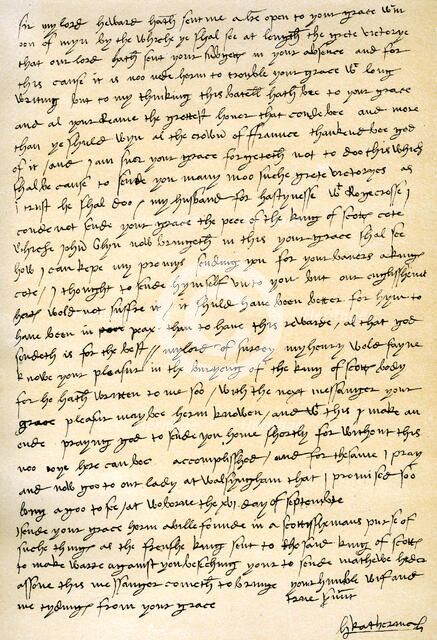 Sir my lord howard hath sent me a lre open to your grace wtin
oon of myn by the whiche ye shal see at length the grete victorye
that our lord hath sent your subgetts in your absence and for
this cause it is noo nede herin to trouble your grace wt long
writing but to my thinking this batell hath bee to your grace
and al your reame the grettest honor that coude bee and more
than ye shuld wyn al the crown of fraunce thankend bee god
of it / and I am suer your grace forgeteth not to doo this which
shal be cause to sende you many moo suche grete victoryes as
I trust he shal doo / my husband for hastynesse wt Rogecrosse I
coude not sende your grace the pece of the king of scotts cote
whiche John Glyn now bringeth in this your grace shal see
how I can kepe my promys sending you for your baners a kings
cote / I thought to sende hymself unto you but our englisshemens
herts wold not suffre it / it shuld have been better for hym to
have been in peax than to have this rewarde / al that god
sendeth is for the best / my lord of surrey my henry wold fayne
knowe your pleasur in the buryeng of the king of scotts body
for he hath writen to me soo / with the next messanger your
grace pleasur may bee herin knowen / and wt this I make an
ende praying god to sende you home shortly for without this
noo joye here can bee accomplisshed / and for the same I pray
and now goo to our lady at walsingham that I promised soo
long agoo to see / at woborne the xvi day of septembre
I sende your grace herin a bille founde in a scottisshemans purse of
suche things as the frenshe king sent to the said king of scotts
to make warre against you beseching your to sende mathewe heder
assone this messanger cometh to bringe your humble wif and
me tydings from your grace true servant
Katherine